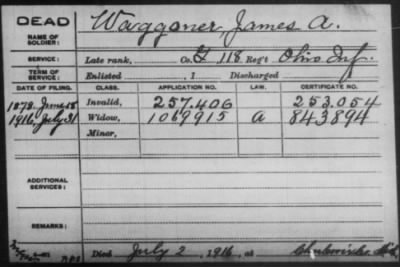 DEAD
NAME OF SOLDIER: Waggoner, James A.
SERVICE: Late rank, Co. G 118 Reg't Ohio Inf.
TERM OF SERVICE: Enlisted , 1 Discharged
DATE OF FILING. CLASS. APPLICATION NO. LAW. CERTIFICATE NO.
1878, June 18 Invalid, 257.406 253.054
1916, July 31 Widow, 1069915 A 843894
Minor,
ADDITIONAL SERVICES:
REMARKS:
Died July 2, 1916, at